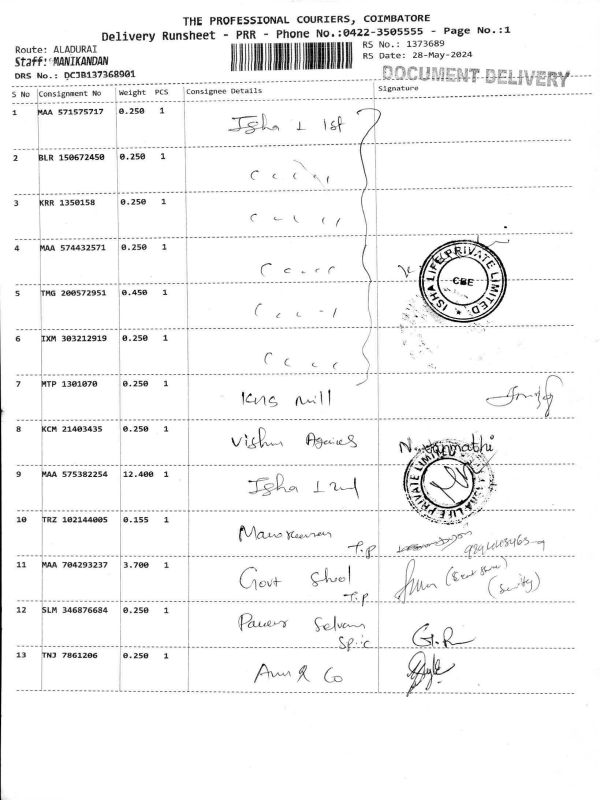 THE PROFESSIONAL COURIERS, COIMBATORE
Delivery Runsheet - PRR - Phone No.:0422-3505555 - Page No.:1
Route: ALADURAI
RS No.: 1373689
Staff: MANIKANDAN
RS Date: 28-May-2024
DRS No.: DCJB137368901
DOCUMENT DELIVERY
S No Consignment No Weight PCS Consignee Details Signature
1 MAA 571575717 0.250 1 Isha 1 1st
2 BLR 150672450 0.250 1
3 KRR 1350158 0.250 1
4 MAA 574432571 0.250 1
ISHA LIFE PRIVATE LIMITED
CBE
5 TMG 200572951 0.450 1
6 IXM 303212919 0.250 1
7 MTP 1301070 0.250 1 mill
8 KCM 21403435 0.250 1 Vishnu
9 MAA 575382254 12.400 1 Isha 1 2nd
ISHA LIFE PRIVATE LIMITED
10 TRZ 102144005 0.155 1 T.P
11 MAA 704293237 3.700 1 Govt School T.P
12 SLM 346876684 0.250 1 Selvam G.R
13 TNJ 7861206 0.250 1 & Co